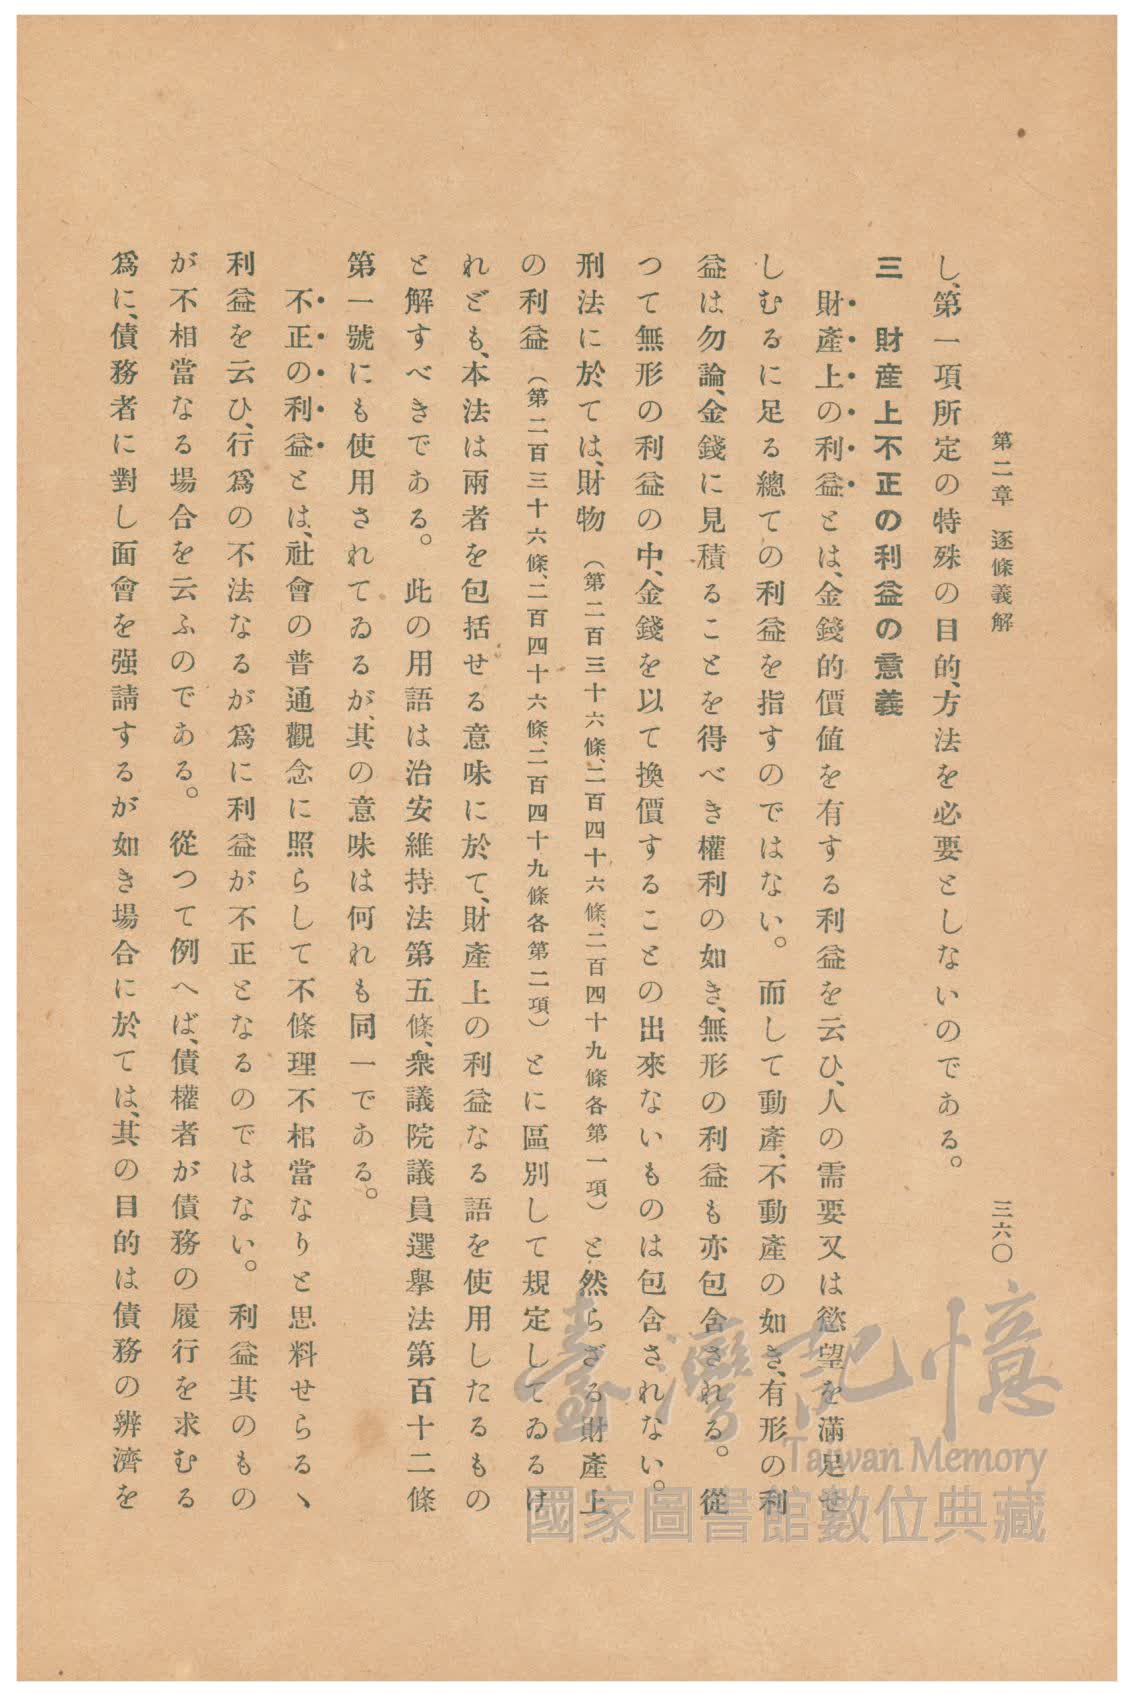 第二章 逐條義解
三六〇
し、第一項所定の特殊の目的、方法を必要としないのである。
三 財産上不正の利益の意義
財產上の利益とは、金錢的價値を有する利益を云ひ、人の需要又は慾望を滿足せ
しむるに足る總ての利益を指すのではない。而して動產、不動產の如き、有形の利
益は勿論、金錢に見積ることを得べき權利の如き、無形の利益も亦包含される。從
つて無形の利益の中、金錢を以て換價することの出來ないものは包含されない。
刑法に於ては、財物（第二百三十六條、二百四十六條、二百四十九條各第一項）と然らざる財產上
の利益（第二百三十六條、二百四十六條、二百四十九條各第二項）とに區別して規定してゐるけ
れども、本法は兩者を包括せる意味に於て、財產上の利益なる語を使用したるもの
と解すべきである。此の用語は治安維持法第五條、衆議院議員選擧法第百十二條
第一號にも使用されてゐるが、其の意味は何れも同一である。
不正の利益とは、社會の普通觀念に照らして不條理不相當なりと思料せらるヽ
利益を云ひ、行爲の不法なるが爲に利益が不正となるのではない。利益其のもの
が不相當なる場合を云ふのである。從つて例へば、債權者が債務の履行を求むる
爲に、債務者に對し面會を强請するが如き場合に於ては、其の目的は債務の辨濟を
臺灣記憶
Taiwan Memory
國家圖書館數位典藏